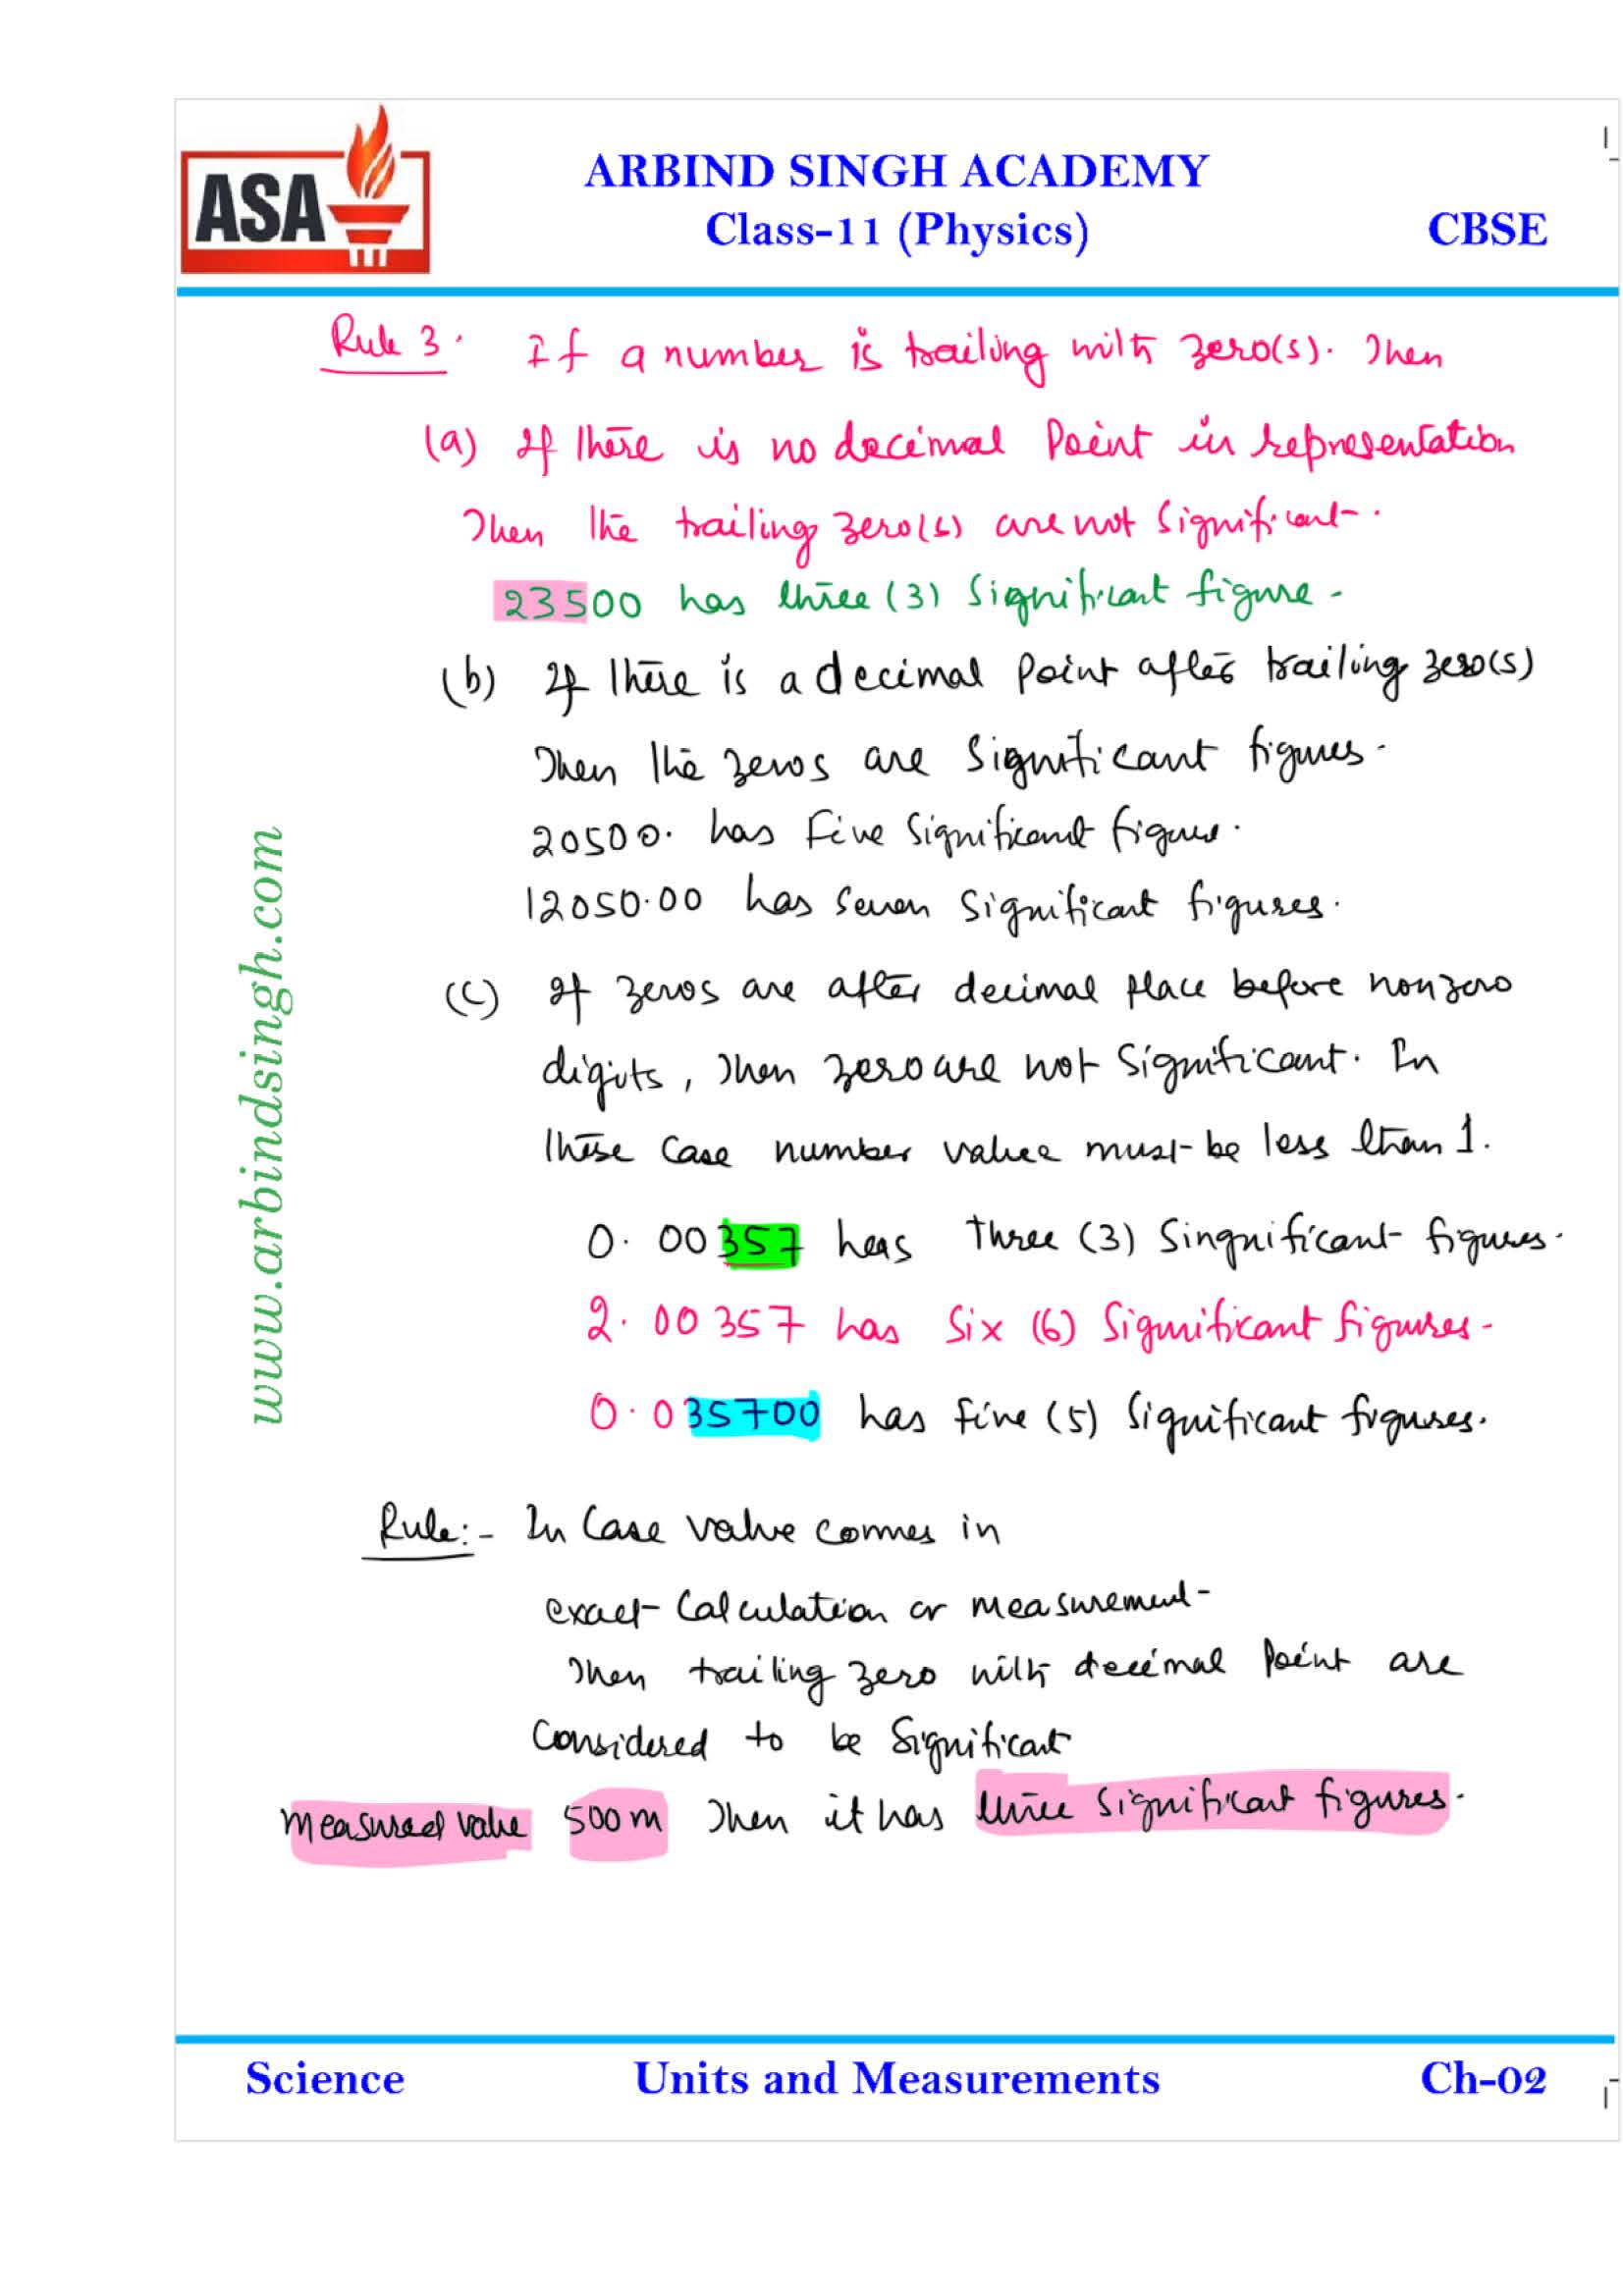 ASA
ARBIND SINGH ACADEMY
Class-11 (Physics)
CBSE
Rule 3. If a number is trailing with zero(s). Then
(a) If there is no decimal Point in representation
Then the trailing zero(s) are not significant.
23500 has three (3) Significant figure.
(b) If there is a decimal Point after trailing zero(s)
Then the zeros are significant figures.
20500. has Five Significant figure.
12050.00 has seven significant figures.
(c) If zeros are after decimal place before nonzero
digits, then zero are not significant. In
these case number value must be less than 1.
0.00357 has Three (3) Singnificant figures.
2.00357 has Six (6) Significant figures.
0.035700 has five (5) Significant figures.
Rule:- In Case value comes in
exact Calculation or measurement
Then trailing zero with decimal Point are
Considered to be significant
Measured value 500m Then it has three significant figures.
www.arbindsingh.com
Science
Units and Measurements
Ch-02